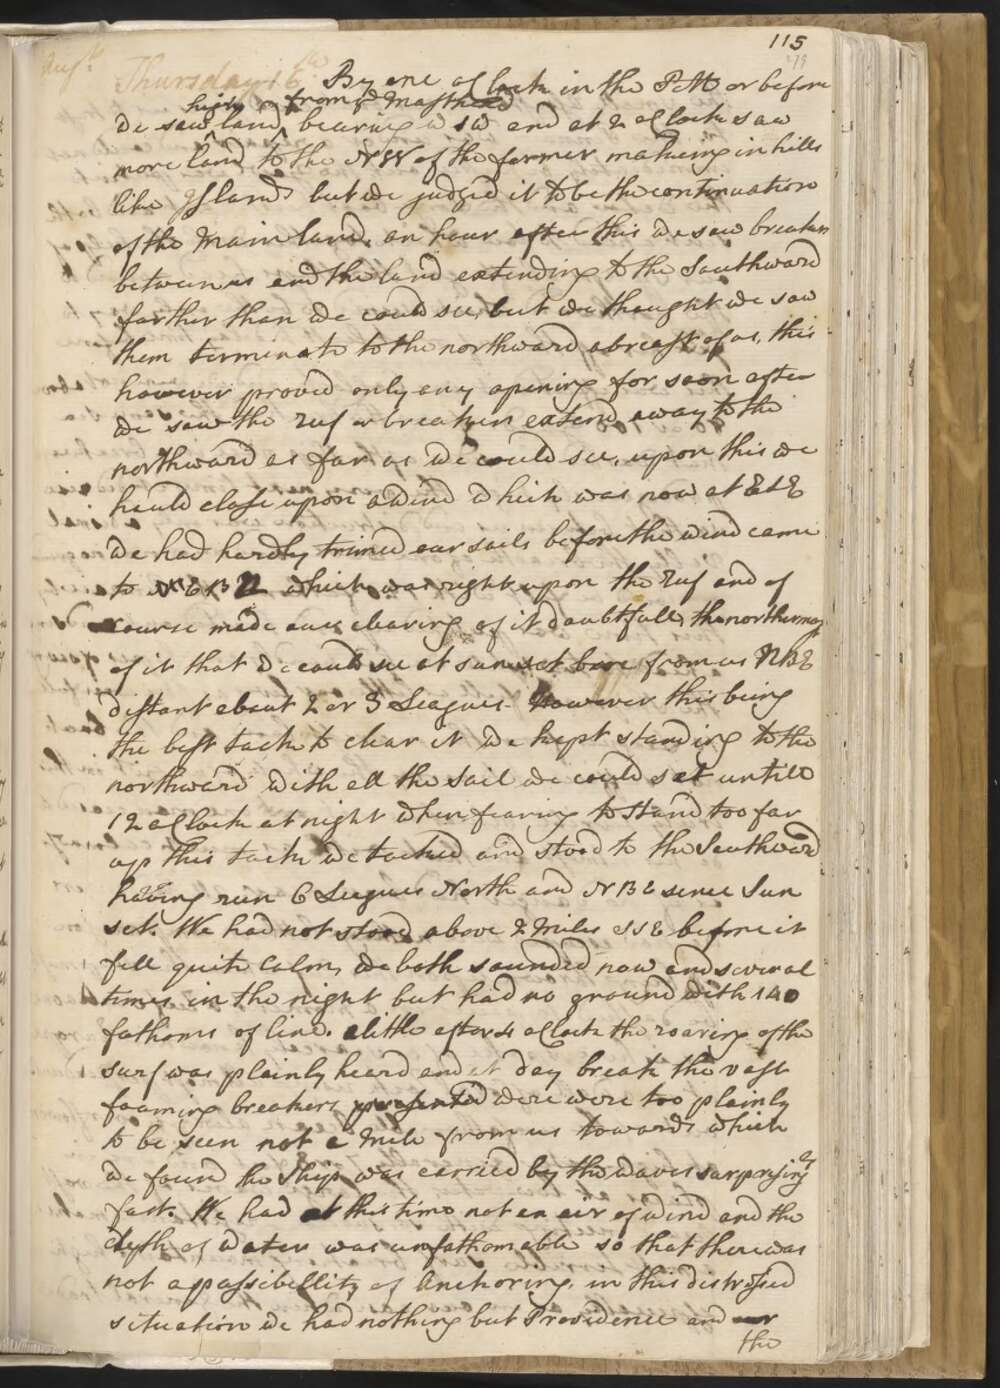 115
Augt. Thursday 16th By one oClock in the PM or before
We saw high land from ye Masthead bearing W SW and at 2 oClock saw
more land to the NW of the former making in hills
like Islands but we judged it to be the continuation
of the Main land. an hour after this we saw breakers
between us and the land extending to the Southward
farther than we could see, but we thought we saw
them terminate to the northward abreast of us, this
however proved only any opening for soon after
we saw the reef or breakers extend away to the
northward as far as we could see, upon this we
hauld close upon a wind which was now at ESE
We had hardly trimed our sails before the wind came
to EBN which was right upon the reef and of
course made our clearing of it doubtfull, the northermo
of it that we could see at sunset bore from us NBE
distant about 2 or 3 Leagues. However this being
the best tack to clear it we kept standing to the
northward with all the sail we could set untill
12 oClock at night when fearing to stand too far
up this tack we tacked and stood to the Southward
having run 6 Leagues North and NBE sence Sun
set. We had not stood above 2 Miles SSE before it
fell quite Calm, we both sounded now and several
times in the night but had no ground with 140
fathoms of line. a little after 4 oClock the roaring of the
surf was plainly heard and at day break the vast
foaming breakers presented were were too plainly
to be seen not a Mile from us towards which
we found the Ship was carried by the waves surprisingly
fast. We had at this time not an air of wind and the
depth of water was unfathomable so that there was
not a possibillity of Anchoring, in this distressed
situation we had nothing but Providence and our
the